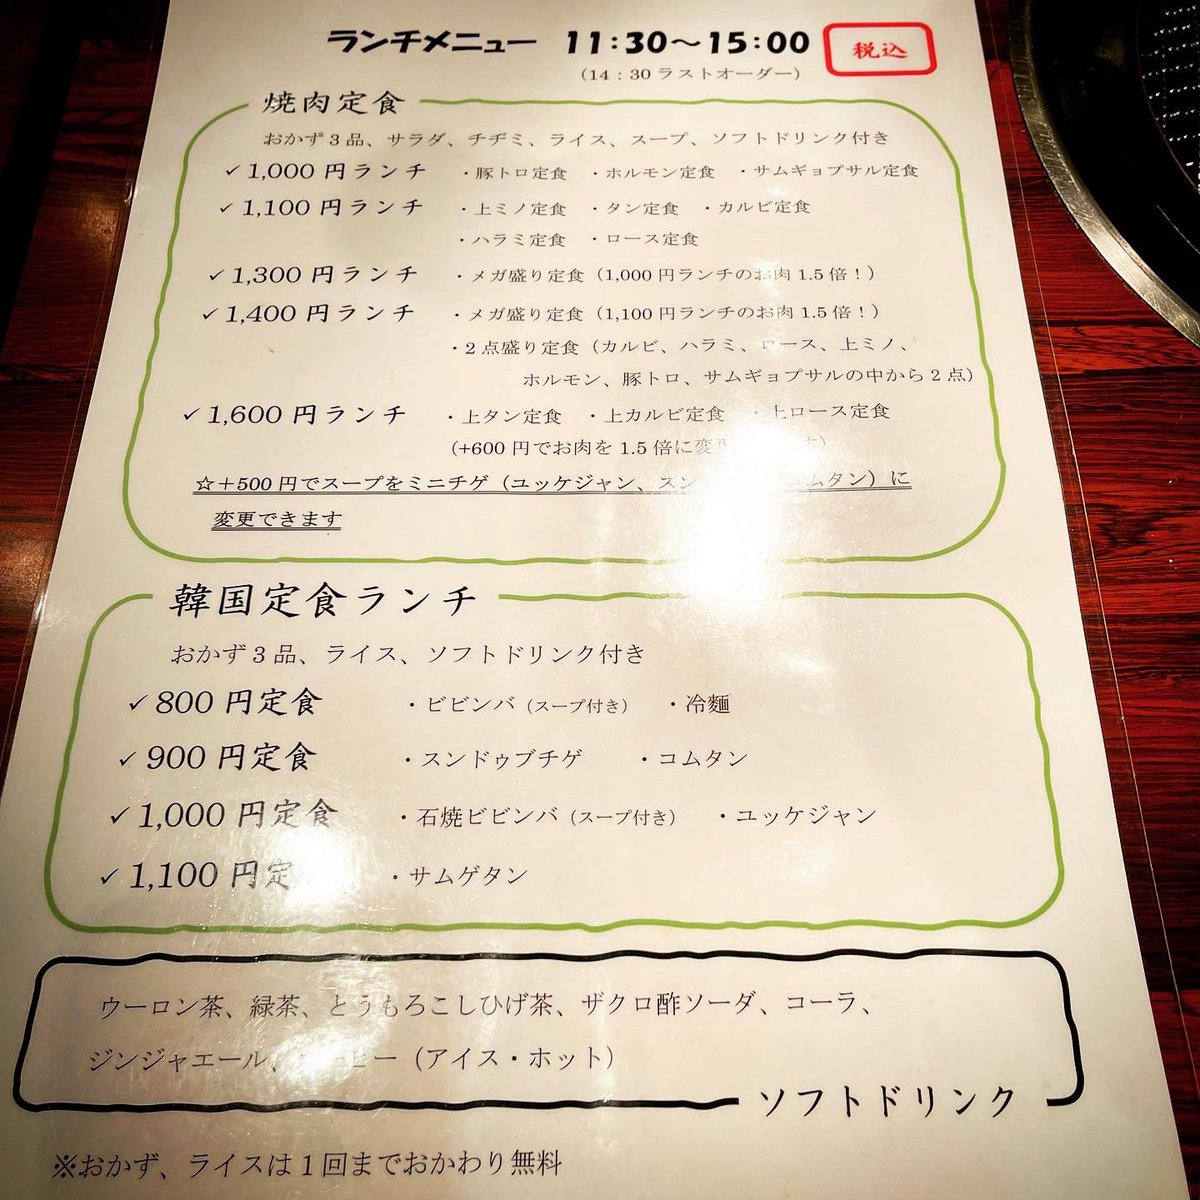 ランチメニュー 11:30～15:00 税込
(14：30 ラストオーダー)
焼肉定食
おかず3品、サラダ、チヂミ、ライス、スープ、ソフトドリンク付き
✓1,000円ランチ ・豚トロ定食 ・ホルモン定食 ・サムギョプサル定食
✓1,100円ランチ ・上ミノ定食 ・タン定食 ・カルビ定食
・ハラミ定食 ・ロース定食
✓1,300円ランチ ・メガ盛り定食（1,000円ランチのお肉1.5倍！）
✓1,400円ランチ ・メガ盛り定食（1,100円ランチのお肉1.5倍！）
・2点盛り定食（カルビ、ハラミ、ロース、上ミノ、
ホルモン、豚トロ、サムギョプサルの中から2点）
✓1,600円ランチ ・上タン定食 ・上カルビ定食 ・上ロース定食
（+600円でお肉を1.5倍に変
☆＋500円でスープをミニチゲ（ユッケジャン、スン ムタン）に
変更できます
韓国定食ランチ
おかず3品、ライス、ソフトドリンク付き
✓800円定食 ・ビビンバ（スープ付き） ・冷麺
✓900円定食 ・スンドゥブチゲ ・コムタン
✓1,000円定食 ・石焼ビビンバ（スープ付き） ・ユッケジャン
✓1,100円定 ・サムゲタン
ウーロン茶、緑茶、とうもろこしひげ茶、ザクロ酢ソーダ、コーラ、
ジンジャエール、 ーヒー（アイス・ホット）
ソフトドリンク
※おかず、ライスは1回までおかわり無料